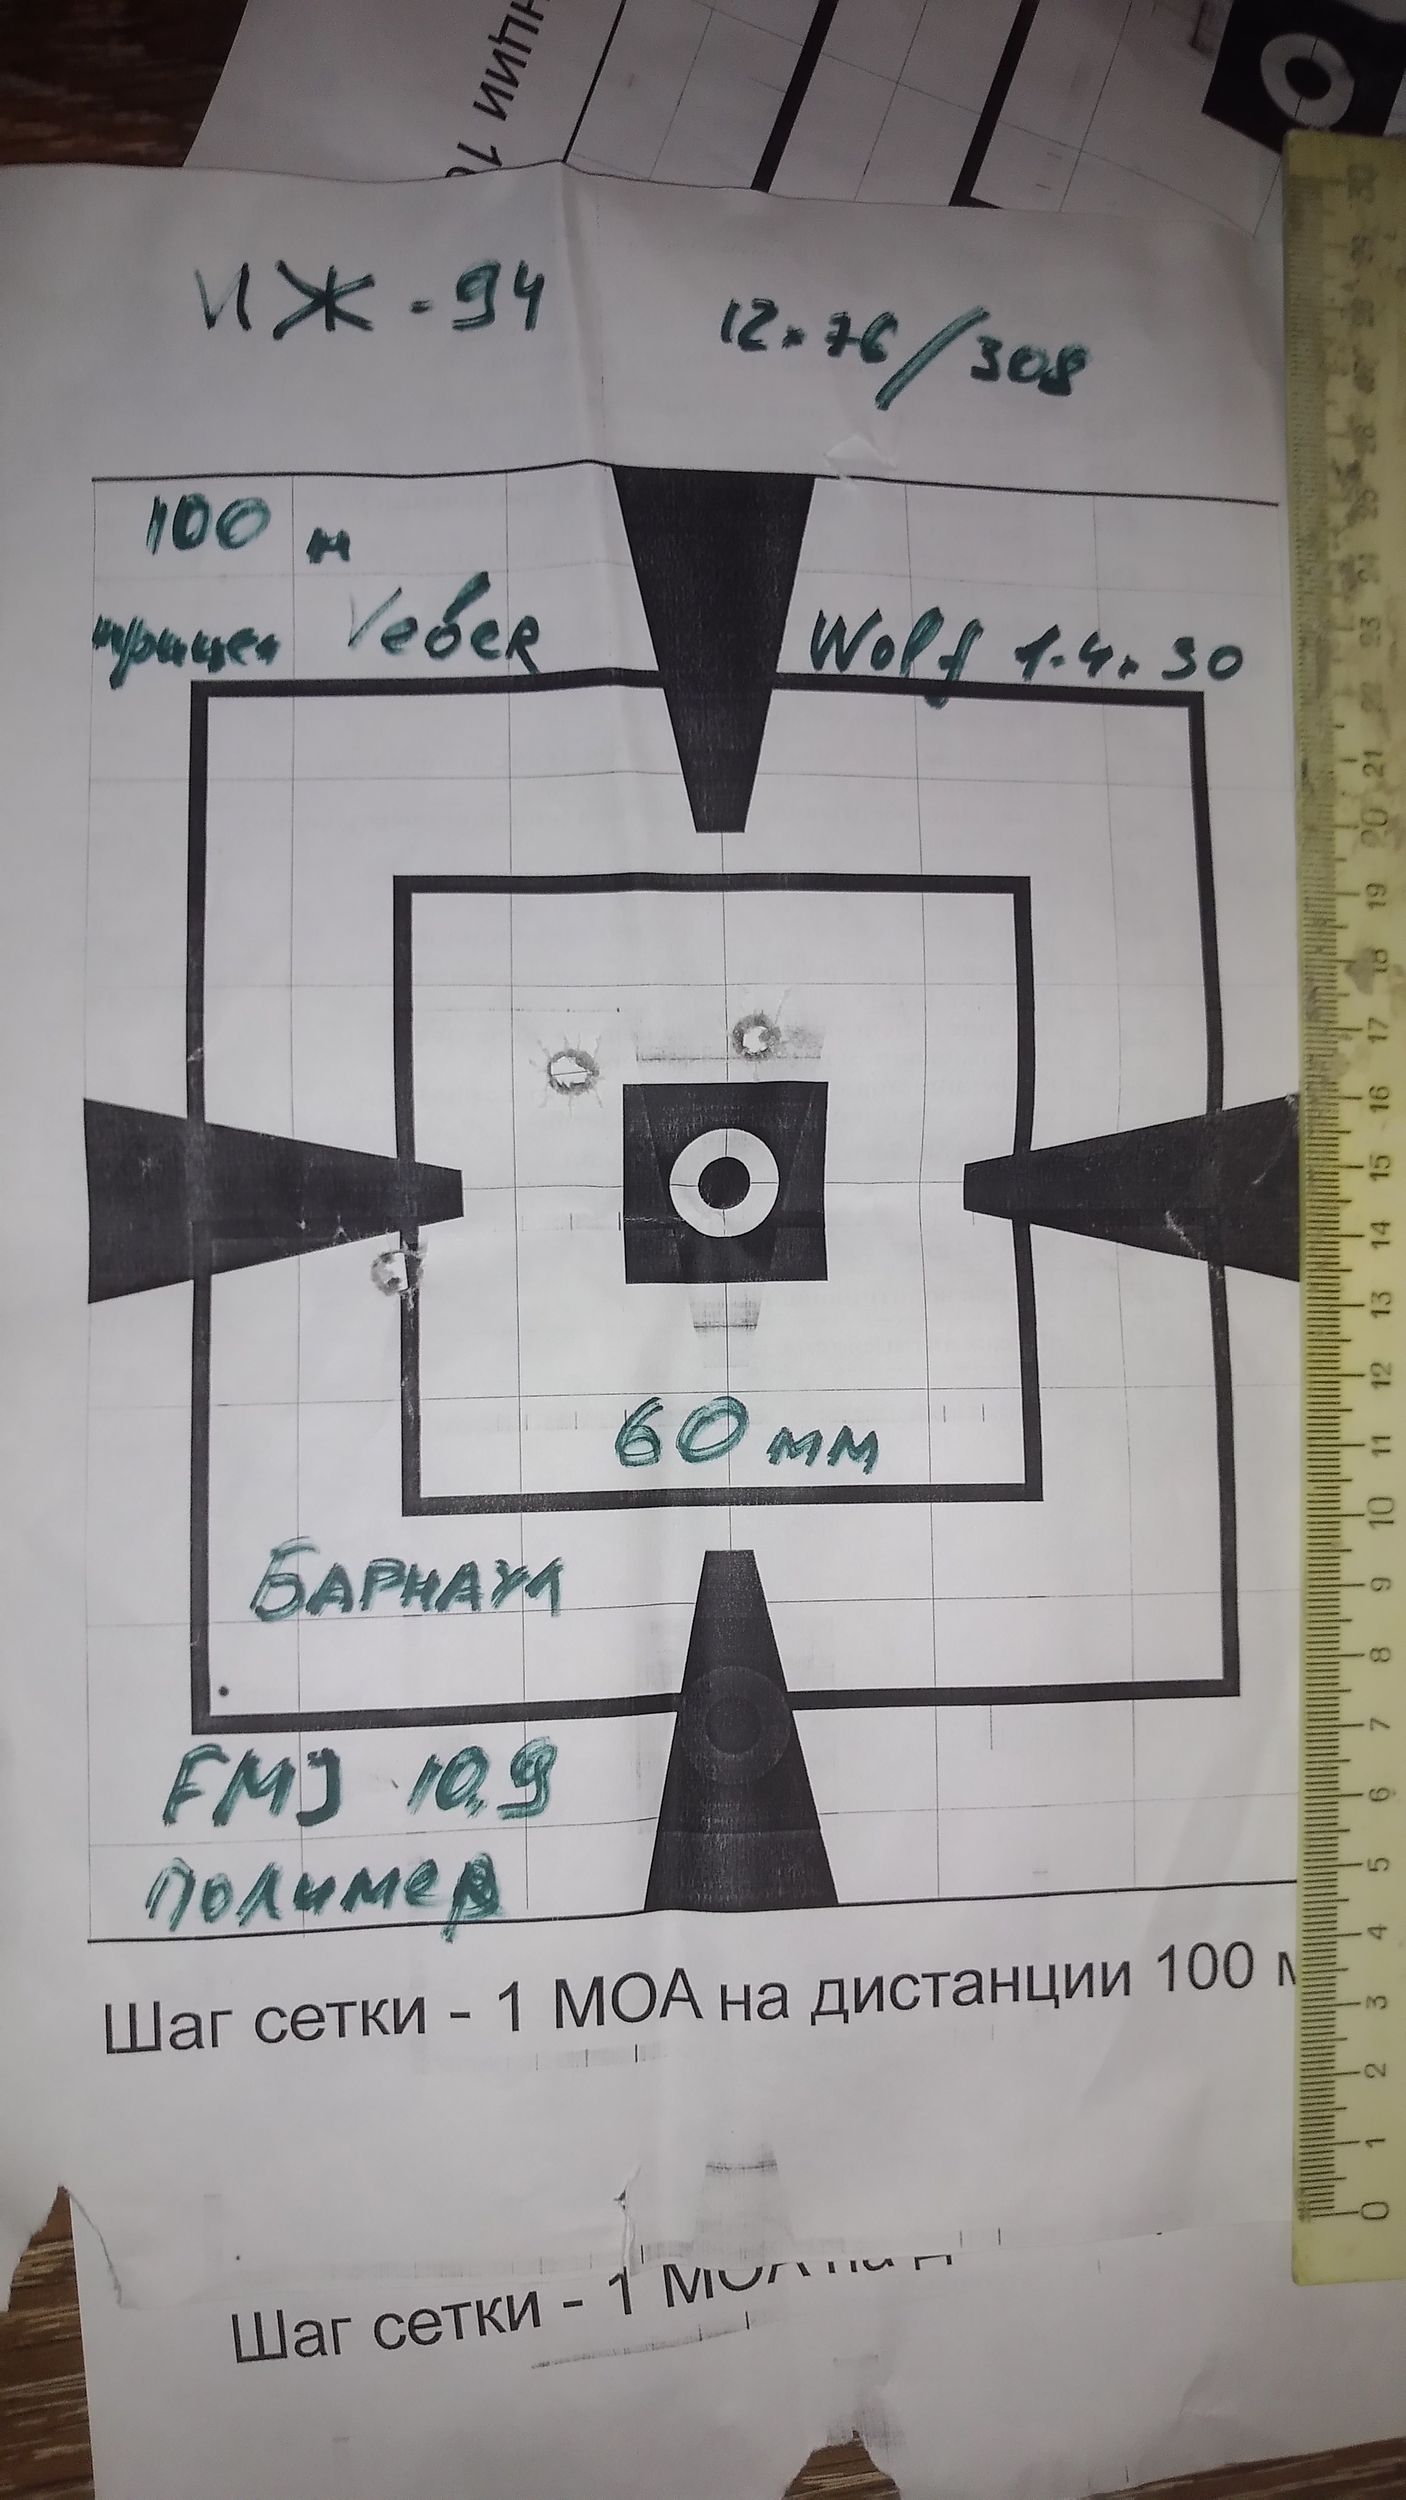 нции 10
ИЖ-94 12×76/308
100 м
прицел Veber Wolf 1-4×30
60 мм
БАРНАУЛ
FMJ 10,9
полимер
Шаг сетки - 1 МОА на дистанции 100 м
Шаг сетки - 1 МОА на д
30 29 28 27 26 25 24 23 22 21 20 19 18 17 16 15 14 13 12 11 10 9 8 7 6 5 4 3 2 1 0